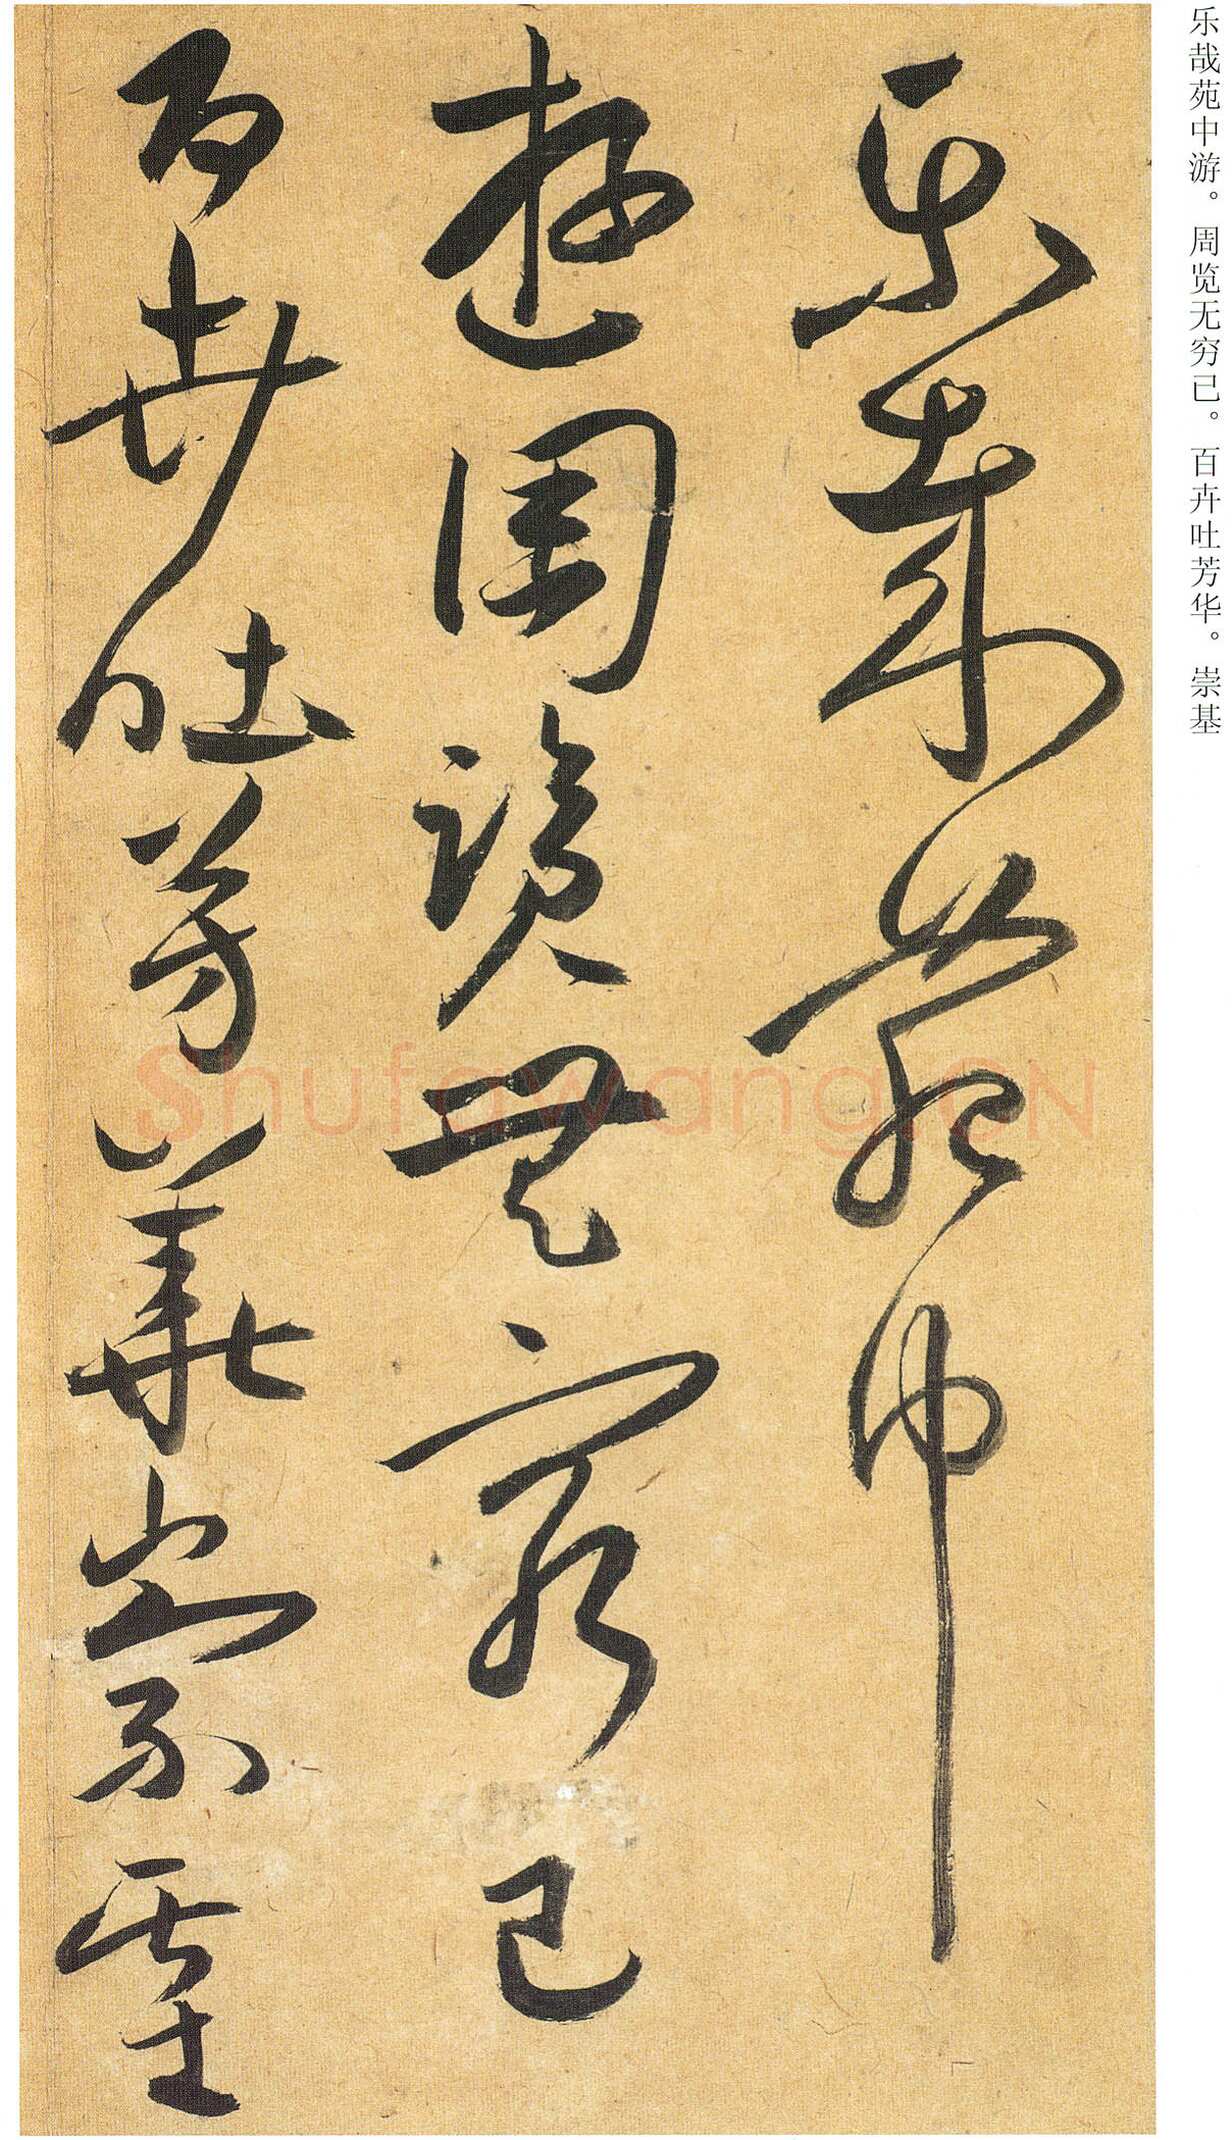 乐哉苑中游。周览无穷已。百卉吐芳华。崇基
樂哉苑中
遊周覽無窮已
百卉吐芳華崇基
Shufawang.CN